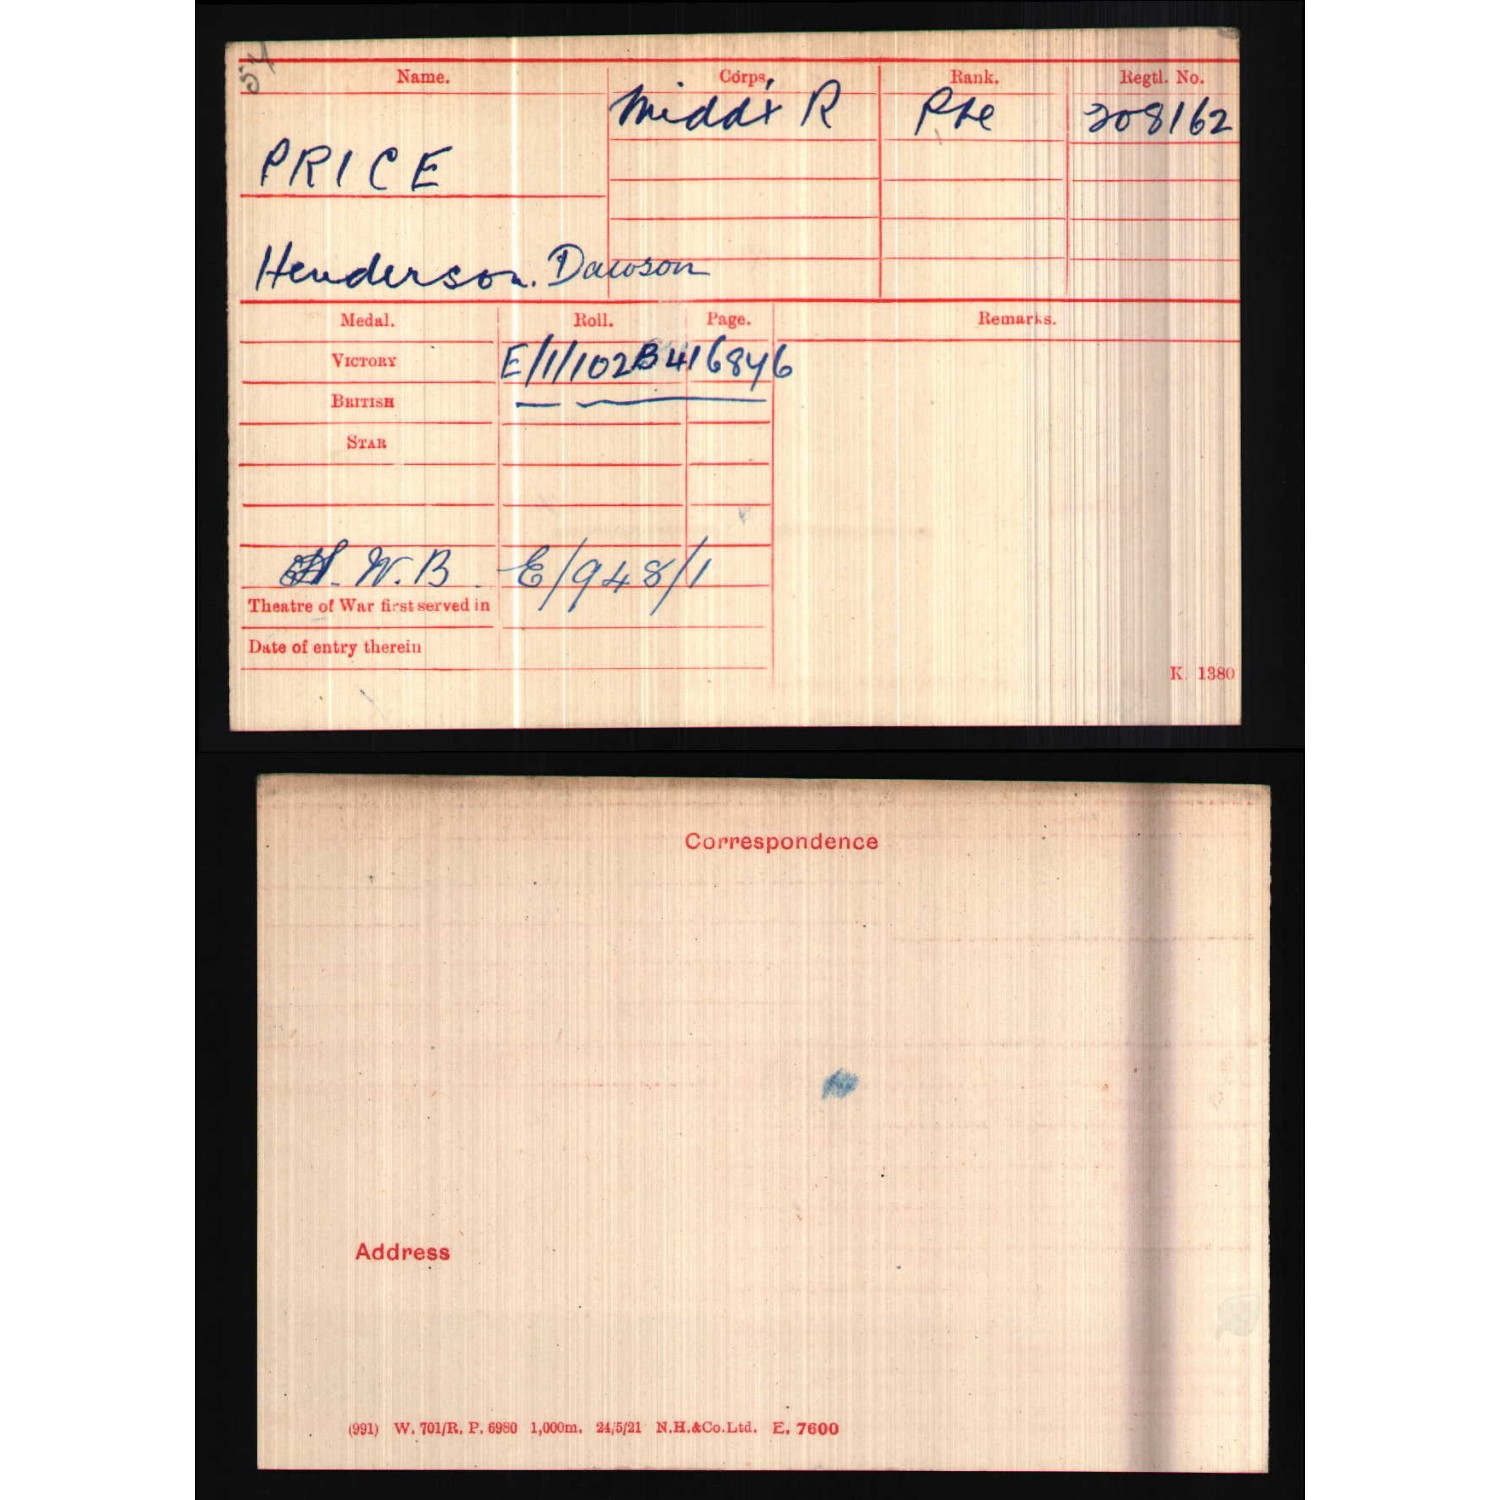 54
Name. Corps. Rank. Regtl. No.
Midd'x R Pte 208162
PRICE
Henderson. Dawson
Medal. Roll. Page. Remarks.
VICTORY E/1/102B41 6846
BRITISH
STAR
S.W.B. E/948/1
Theatre of War first served in
Date of entry therein
K. 1380
Correspondence
Address
(991) W. 701/R. P. 6980 1,000m. 24/5/21 N.H.&Co.Ltd. E. 7600